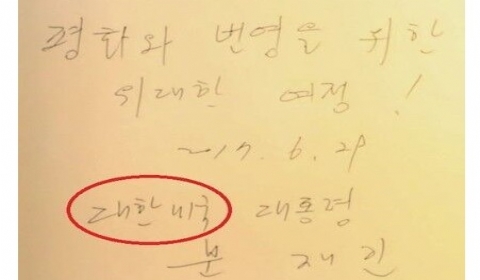 평화와 번영을 위한
위대한 여정!
2017. 6. 28
대한미국 대통령
문재인